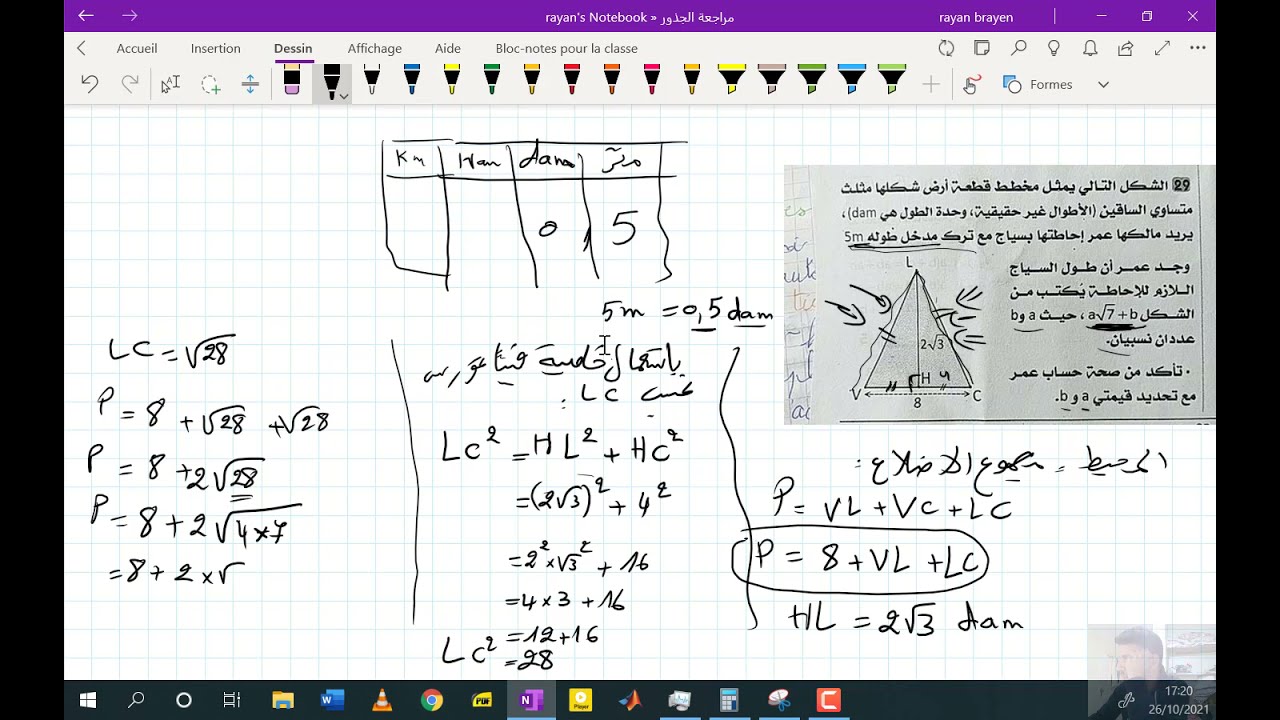 rayan's Notebook » مراجعة الجذور
rayan brayen
Accueil Insertion Dessin Affichage Aide Bloc-notes pour la classe
Formes
Km Ham dam متر
0 5
5m = 0,5 dam
29 الشكل التالي يمثل مخطط قطعة أرض شكلها مثلث
متساوي الساقين (الأطوال غير حقيقية، وحدة الطول هي dam)،
يريد مالكها عمر إحاطتها بسياج مع ترك مدخل طوله 5m
وجد عمر أن طول السياج
اللازم للإحاطة يُكتب من
الشكل a√7+b، حيث a و b
عددان نسبيان.
• تأكد من صحة حساب عمر
مع تحديد قيمتي a و b.
L
2√3
H 4
V C
8
LC = √28
P = 8 + √28 + √28
P = 8 + 2√28
P = 8 + 2√4×7
= 8 + 2 × √
باستعمال خاصية فيثاغورس
LC :
LC² = HL² + HC²
= (2√3)² + 4²
= 2² × √3² + 16
= 4 × 3 + 16
= 12 + 16
LC² = 28
المحيط = مجموع الأضلاع :
P = VL + VC + LC
P = 8 + VL + LC
HL = 2√3 dam
17:20
26/10/2021